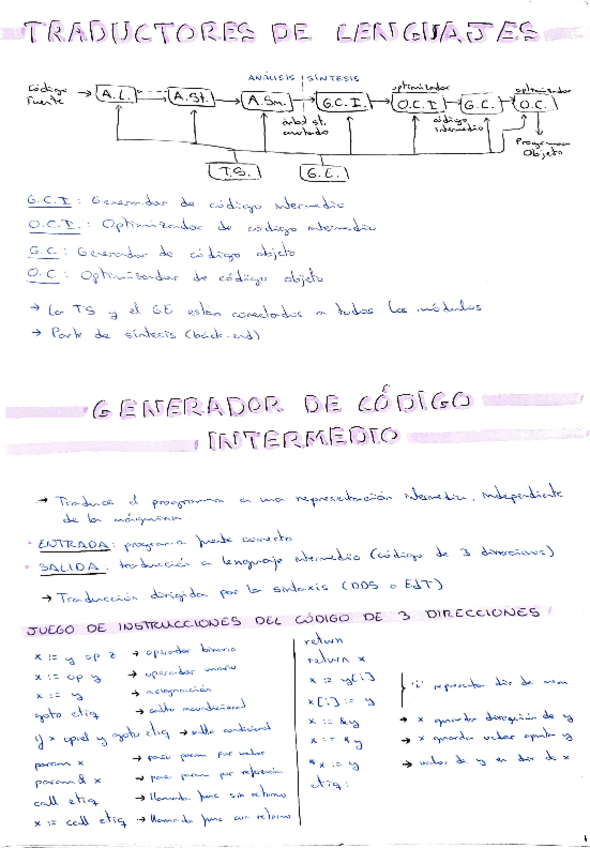 TRADUCTORES DE LENGUAJES
ANÁLISIS | SÍNTESIS
optimizador
optimizador
Código
Fuente
A.L.
A.St.
A.Sm.
G.C.I.
O.C.I.
G.C.
O.C.
árbol st.
anotado
código
intermedio
Programa
Objeto
T.S.
G.E.
G.C.I: Generador de código intermedio
O.C.I.: Optimizador de código intermedio
G.C: Generador de código objeto
O.C: Optimizador de código objeto
→ La TS y el GE están conectados a todos los módulos
→ Parte de síntesis (back-end)
GENERADOR DE CÓDIGO
INTERMEDIO
→ Traduce el programa a una representación intermedia, independiente
de la máquina
• ENTRADA: programa fuente correcto
• SALIDA: traducción a lenguaje intermedio (código de 3 direcciones)
→ Traducción dirigida por la sintaxis (DDS o EdT)
JUEGO DE INSTRUCCIONES DEL CÓDIGO DE 3 DIRECCIONES
x := y op z → operador binario
x := op y → operador unario
x := y → asignación
goto etiq → salto incondicional
if x oprel y goto etiq → salto condicional
param x → pasa param por valor
param& x → pasa param por referencia
call etiq → llamada func sin retorno
x := call etiq → llamada func con retorno
return
return x
x := y[i]
x[i] := y
"i" representa dir de mem
x := &y → x guarda dirección de y
x := *y → x guarda valor apunta y
*x := y → valor de y en dir de x
etiq:
1